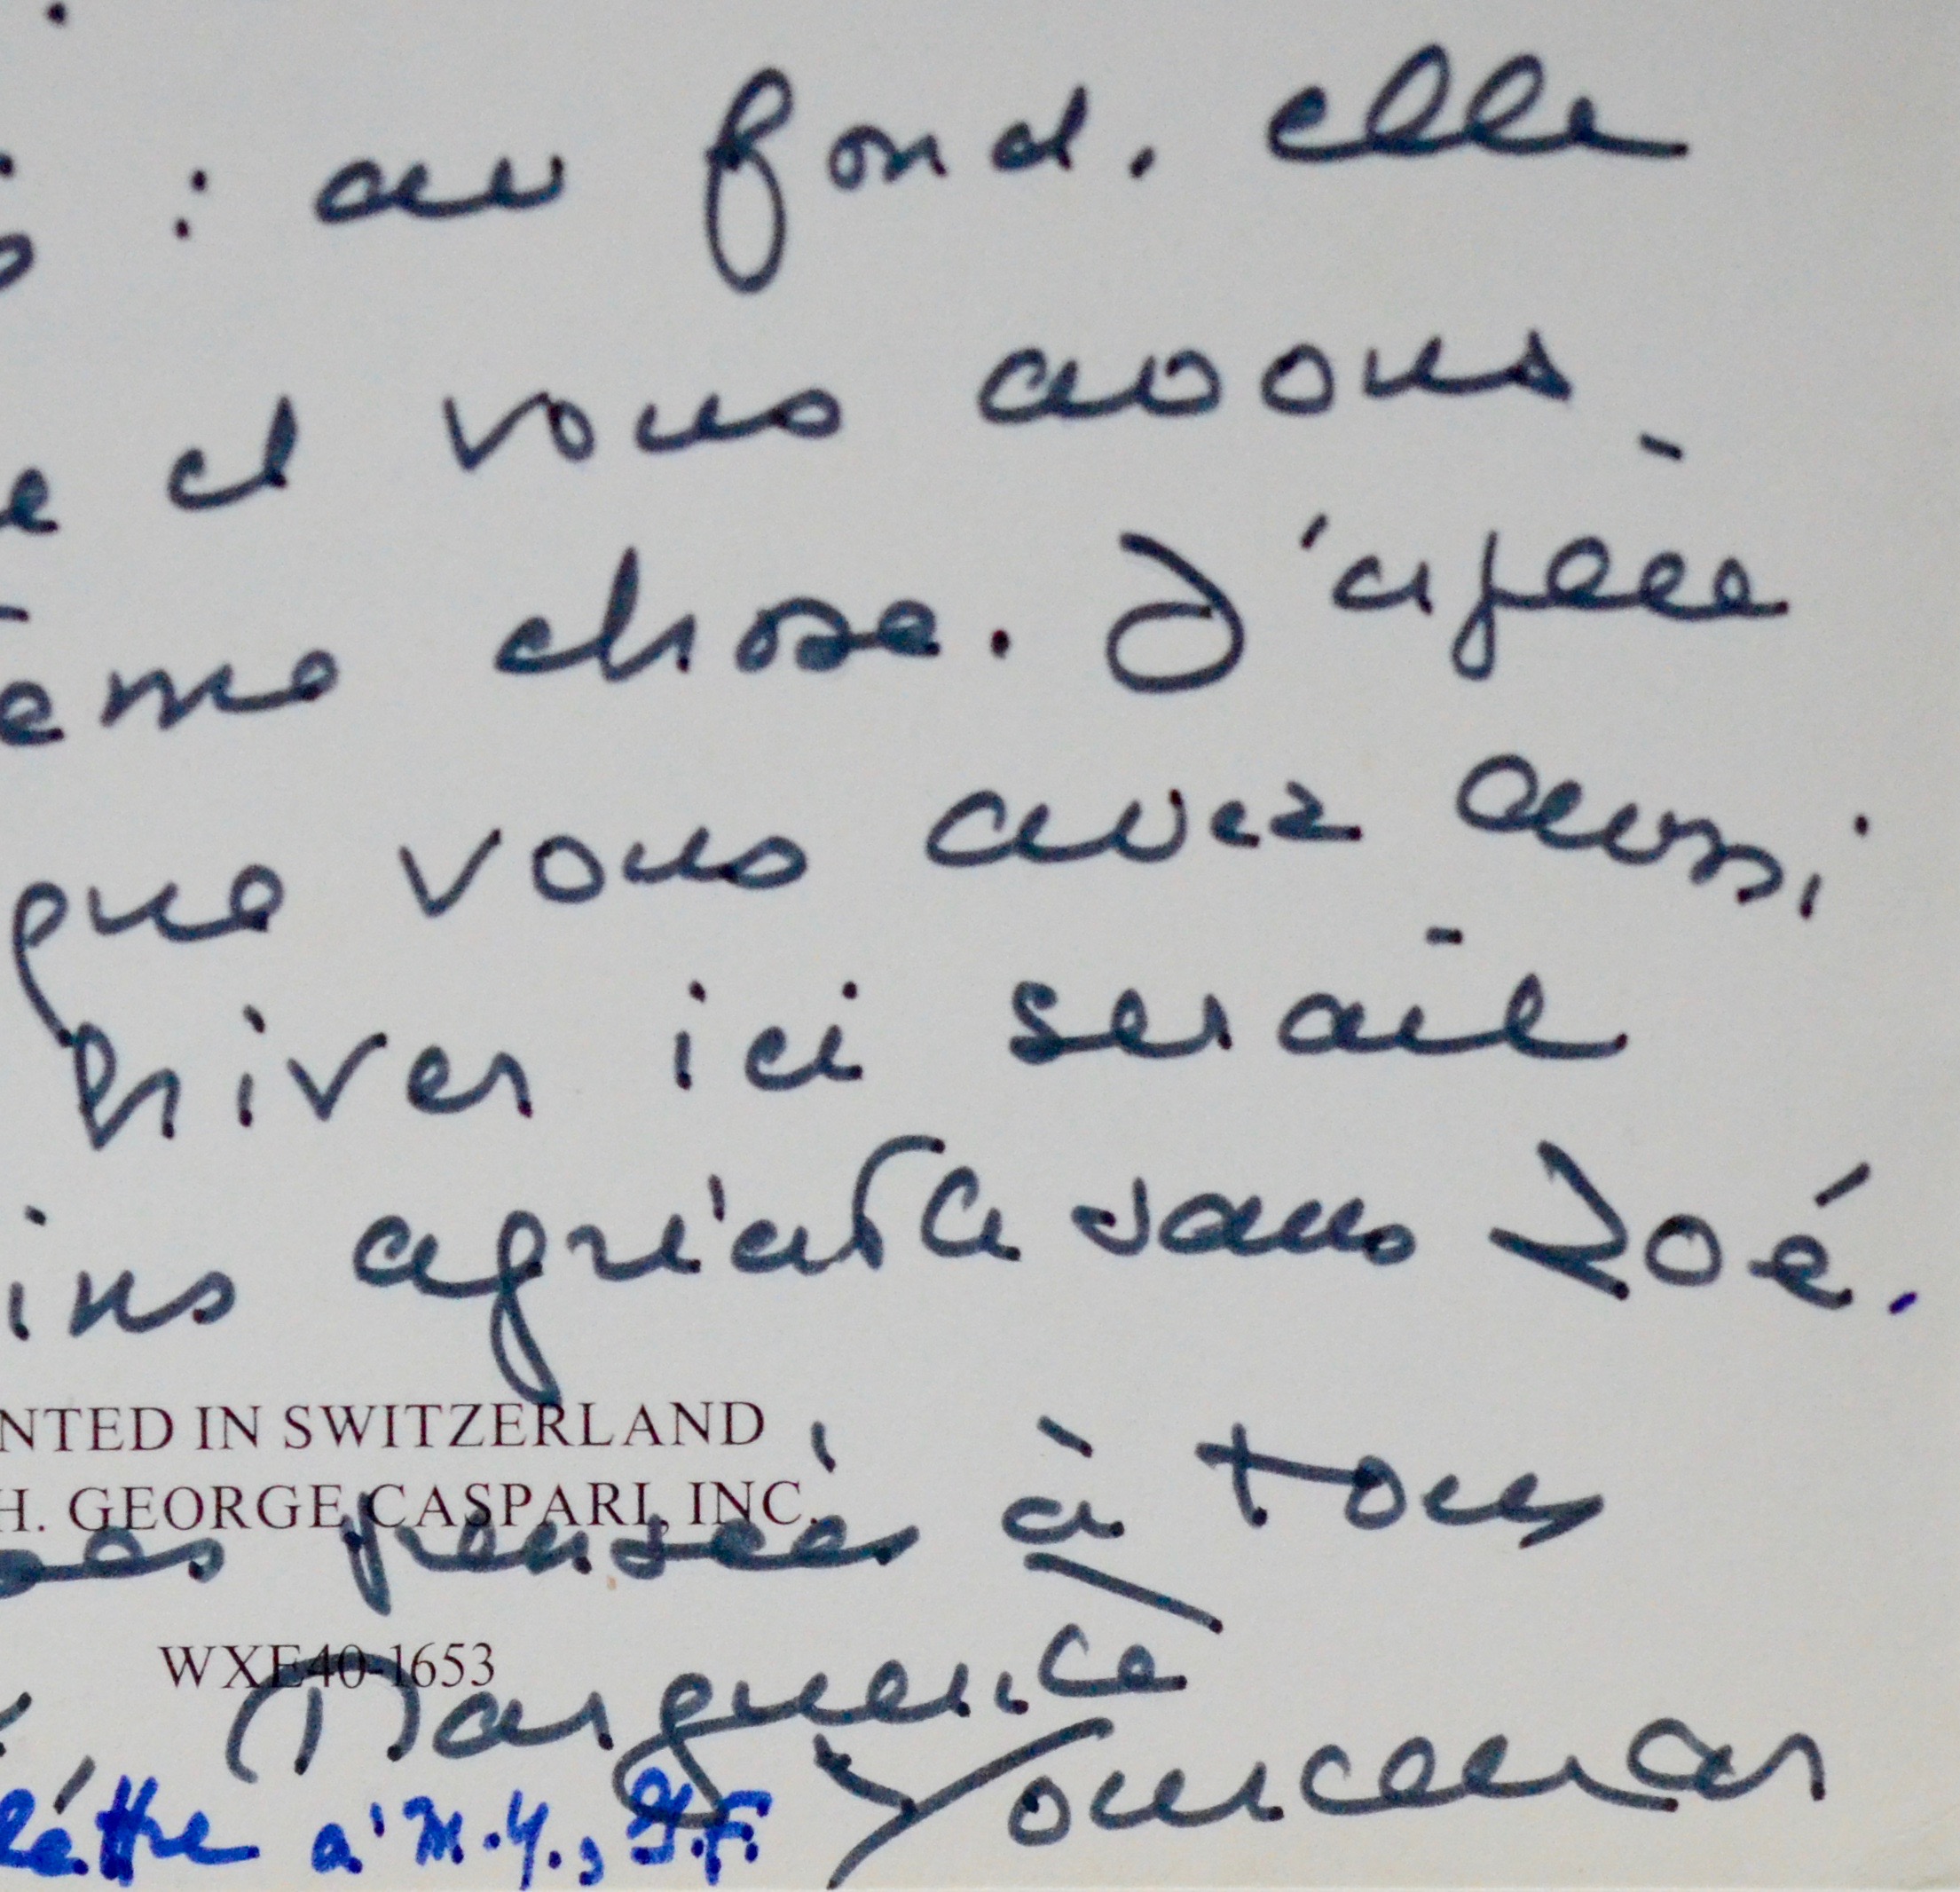 : au fond. elle
e et vous avons
ême chose. J'espère
que vous avez aussi
hiver ici serait
ins agréable sans Zoé.
NTED IN SWITZERLAND
H. GEORGE CASPARI, INC.
es pensées à tous
WXE40-1653
Marguerite
Yourcenar
lettre a' M.Y., G.F.